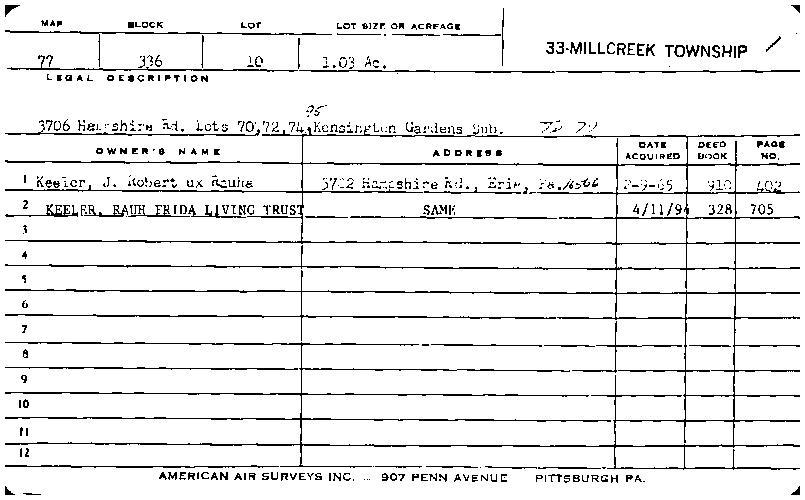 MAP BLOCK LOT LOT SIZE OR ACREAGE
33-MILLCREEK TOWNSHIP /
77 336 10 1.03 Ac.
LEGAL DESCRIPTION
95
3706 Hampshire Rd. Lots 70,72,74, Kensington Gardens Sub.
OWNER'S NAME ADDRESS DATE ACQUIRED DEED BOOK PAGE NO.
1 Keeler, J. Robert ux Rauha 3702 Hampshire Rd., Erie, Pa. 16506 2-9-65 910 402
2 KEELER, RAUH FRIDA LIVING TRUST SAME 4/11/94 328 705
3
4
5
6
7
8
9
10
11
12
AMERICAN AIR SURVEYS INC. — 907 PENN AVENUE PITTSBURGH PA.